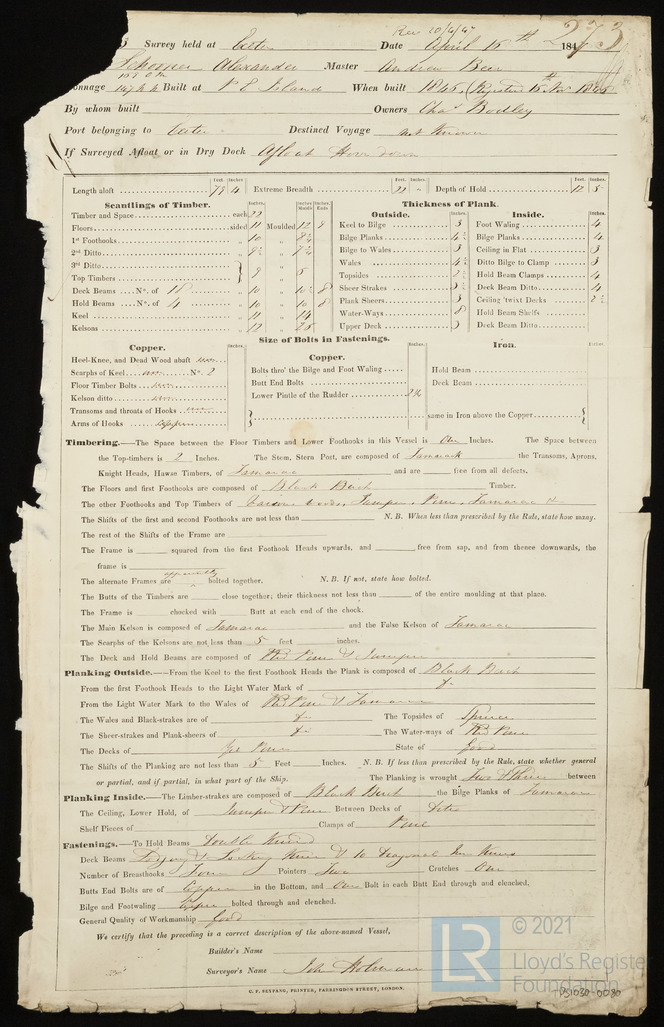 Rec 20/4/47
273
Survey held at Exeter Date April 15th 184
Schooner Alexander Master Andrew Beer
onnage 147 Built at P E Island When built 1846, (Registered
By whom built Owners Chas Bodley
Port belonging to Exeter Destined Voyage not Known
If Surveyed Afloat or in Dry Dock Afloat Hove down
Length aloft 79 4 Extreme Breadth 22 Depth of Hold 12 5
Scantlings of Timber. Thickness of Plank.
Outside. Inside.
Timber and Space each 22
Floors sided 11 Moulded 12 8
1st Foothooks 10
2nd Ditto
3rd Ditto
Top Timbers 9 6
Deck Beams No. of 18 10 8
Hold Beams No. of 4 10 10 8
Keel 11 14
Kelsons 12 26
Keel to Bilge 3
Bilge Planks 4
Bilge to Wales 3
Wales 4
Topsides
Sheer Strakes
Plank Sheers 3
Water-Ways 8
Upper Deck 3
Foot Waling 4
Bilge Planks 4
Ceiling in Flat 3
Ditto Bilge to Clamp 3
Hold Beam Clamps 4
Deck Beam Ditto 4
Ceiling 'twixt Decks 2
Hold Beam Shelfs
Deck Beam Ditto
Size of Bolts in Fastenings.
Copper.
Heel-Knee, and Dead Wood abaft
Scarphs of Keel No. 2
Floor Timber Bolts
Kelson ditto
Transoms and throats of Hooks
Arms of Hooks Copper
Copper.
Bolts thro' the Bilge and Foot Waling
Butt End Bolts
Lower Pintle of the Rudder
Iron.
Hold Beam
Deck Beam
same in Iron above the Copper
Timbering.—The Space between the Floor Timbers and Lower Foothooks in this Vessel is One Inches. The Space between
the Top-timbers is 2 Inches. The Stem, Stern Port, are composed of Tamarack the Transoms, Aprons,
Knight Heads, Hawse Timbers, of Tamarac and are free from all defects.
The Floors and first Foothooks are composed of Black Birch Timber.
The other Foothooks and Top Timbers of Various Woods, Juniper, Pine, Tamarac &
The Shifts of the first and second Foothooks are not less than N.B. When less than prescribed by the Rule, state how many.
The rest of the Shifts of the Frame are
The Frame is squared from the first Foothook Heads upwards, and free from sap, and from thence downwards, the
frame is
The alternate Frames are apparently bolted together. N.B. If not, state how bolted.
The Butts of the Timbers are close together; their thickness not less than of the entire moulding at that place.
The Frame is chocked with Batt at each end of the chock.
The Main Kelson is composed of Tamarac and the False Kelson of Tamarac
The Scarphs of the Kelsons are not less than 5 feet inches.
The Deck and Hold Beams are composed of Red Pine & Juniper
Planking Outside.—From the Keel to the first Foothook Heads the Plank is composed of Black Birch
From the first Foothook Heads to the Light Water Mark of
From the Light Water Mark to the Wales of Red Pine & Tamarac
The Wales and Black-strakes are of The Topsides of Spruce
The Sheer-strakes and Plank-sheers of The Water-ways of Red Pine
The Decks of Pine State of Good
The Shifts of the Planking are not less than 5 Feet Inches. N.B. If less than prescribed by the Rule, state whether general
or partial, and if partial, in what part of the Ship. The Planking is wrought Two & Three between
Planking Inside.—The Limber-strakes are composed of Black Birch the Bilge Planks of Tamarac
The Ceiling, Lower Hold, of Juniper & Pine Between Decks of Ditto
Shelf Pieces of Clamps of Pine
Fastenings.—To Hold Beams Double Kneed
Deck Beams & Lodging Knees & 10 Diagonal Iron Knees
Number of Breasthooks Four Pointers Two Crutches One
Butts End Bolts are of Copper in the Bottom, and One Bolt in each Butt End through and clenched.
Bilge and Footwaling Copper bolted through and clenched.
General Quality of Workmanship Good
We certify that the preceding is a correct description of the above-named Vessel,
Builder's Name
Surveyor's Name John Holman
C. F. SEYFANG, PRINTER, FARRINGDON STREET, LONDON.
LR © 2021
Lloyd's Register
Foundation